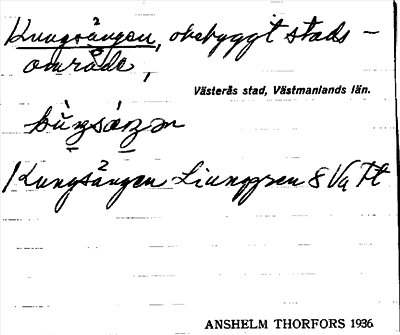 Kungsängen, obebyggt stads-
område,
Västerås stad, Västmanlands län.
Kungsängen Ljunggren 8 Va Tt
ANSHELM THORFORS 1936